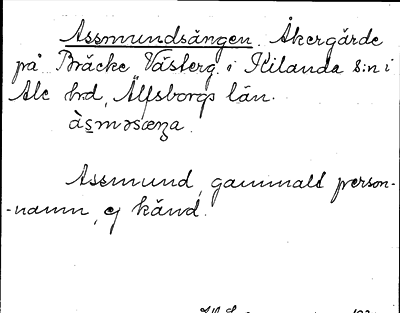 Assmundsängen. Åkergärde
på Bräcke Västerg. i Kilanda s:n i
Ale hd, Älfsborgs län.
Assmund, gammalt person-
-namn, ej känd.